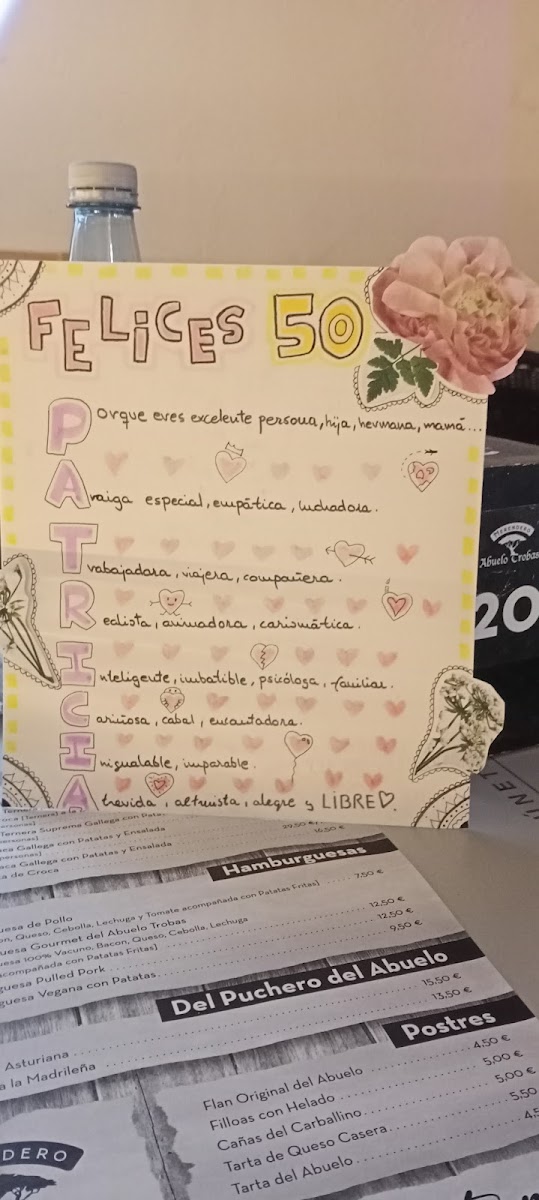 FELICES 50
Porque eres excelente persona, hija, hermana, mamá...
Amiga especial, empática, luchadora.
Trabajadora, viajera, compañera.
Realista, animadora, carismática.
Inteligente, imbatible, psicóloga, familiar.
Cariñosa, cabal, encantadora.
Inigualable, imparable.
Atrevida, altruista, alegre y LIBRE
MERENDERO
Abuelo Trobas
20
Ternera Suprema Gallega con Patatas
Gallega con Patatas y Ensalada
Gallega con Patatas y Ensalada 16,50 €
de Croca
Hamburguesas
uesa de Pollo 7,50 €
on, Queso, Cebolla, Lechuga y Tomate acompañada con Patatas Fritas)
uesa Gourmet del Abuelo Trobas 12,50 €
uesa 100% Vacuno, Bacon, Queso, Cebolla, Lechuga
acompañada con Patatas Fritas)
guesa Pulled Pork 12,50 €
guesa Vegana con Patatas 9,50 €
Del Puchero del Abuelo
Asturiana 15,50 €
a la Madrileña 13,50 €
Postres
Flan Original del Abuelo 4,50 €
Filloas con Helado 5,00 €
Cañas del Carballino 5,00 €
Tarta de Queso Casera 5,50
Tarta del Abuelo 4,5
DERO